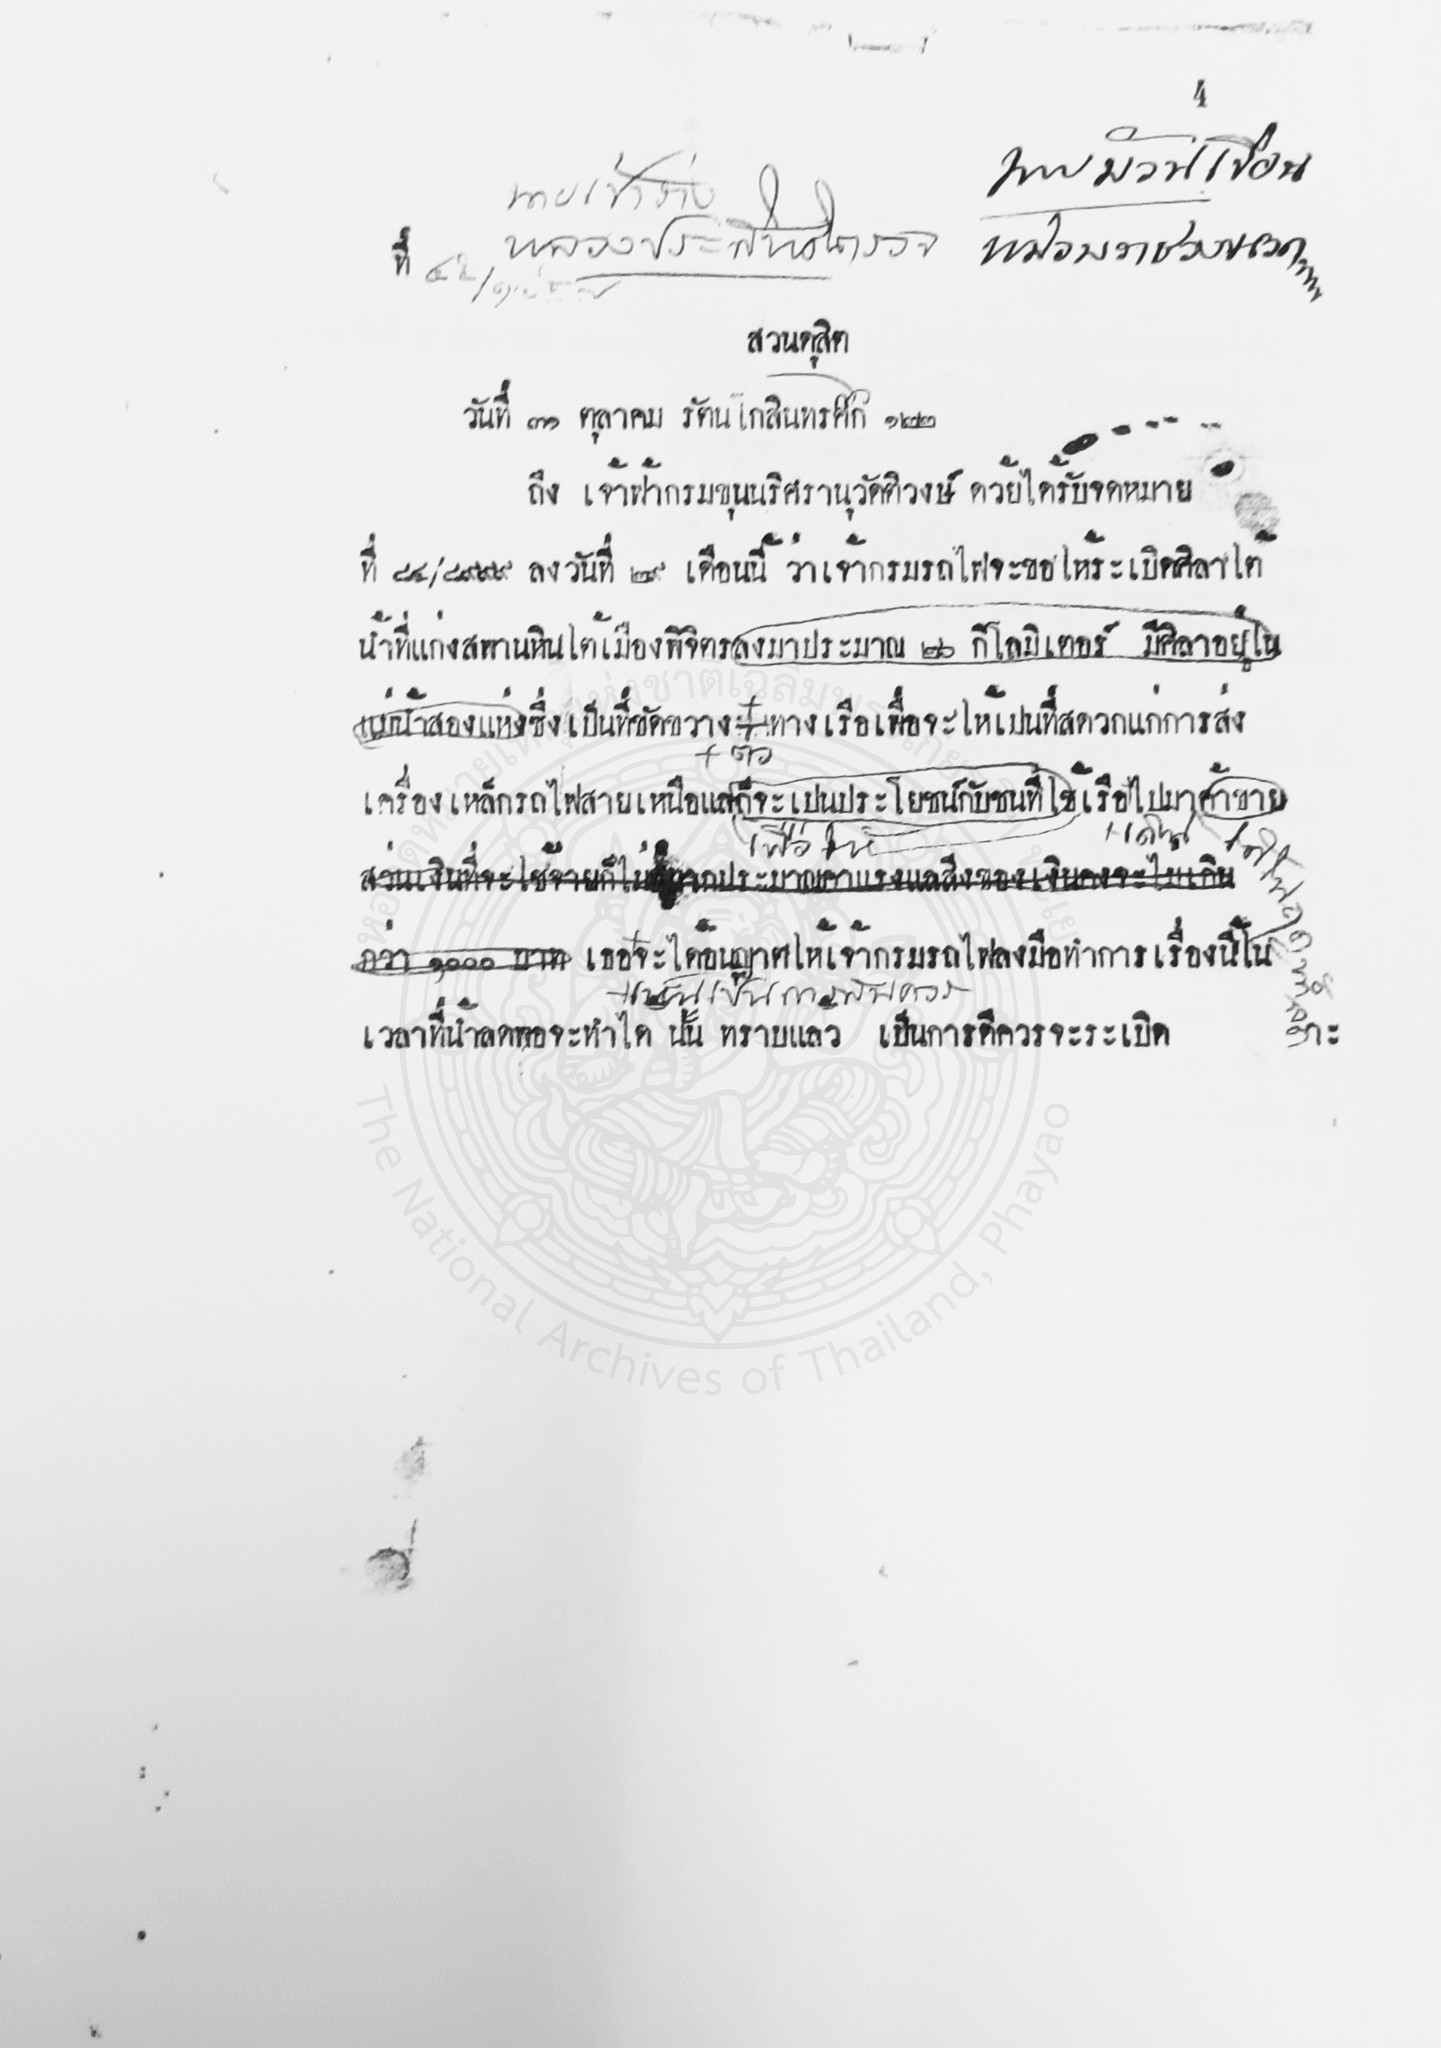 4
นายม้วนเขียน
นายเจ้าร่าง
ที่
สวนดุสิต
วันที่ ๓๑ ตุลาคม รัตนโกสินทรศก ๑๒๒
ถึง เจ้าฟ้ากรมขุนนริศรานุวัดติวงษ์ ด้วยได้รับจดหมาย
ที่ ๘๔/๘๙๙๙ ลงวันที่ ๒๙ เดือนนี้ ว่าเจ้ากรมรถไฟจะขอให้ระเบิดศิลาใต้
น้ำที่แก่งสพานหินใต้เมืองพิจิตรลงมาประมาณ ๒๖ กิโลมิเตอร์ มีศิลาอยู่ใน
แม่น้ำสองแห่งซึ่งเป็นที่ขัดขวาง ทางเรือเพื่อจะให้เปนที่สดวกแก่การส่ง
+ ต่อ
เครื่องเหล็กรถไฟสายเหนือแลก็จะเปนประโยชน์กับชนที่ใช้เรือไปมาค้าขาย
เพื่อให้ +เดิน
ส่วนเงินที่จะใช้จ่ายก็ไม่ ประมาณค่าแรงแลสิ่งของเงินคงจะไม่เกิน
กว่า ๑๐๐๐ บาท เธอจะได้อนุญาตให้เจ้ากรมรถไฟลงมือทำการเรื่องนี้ใน
+
เวลาที่น้ำลดพอจะทำได้ นั้น ทราบแล้ว เป็นการดีควรจะระเบิด
หอจดหมายเหตุแห่งชาติเฉลิมพระเกียรติ พะเยา
The National Archives of Thailand, Phayao